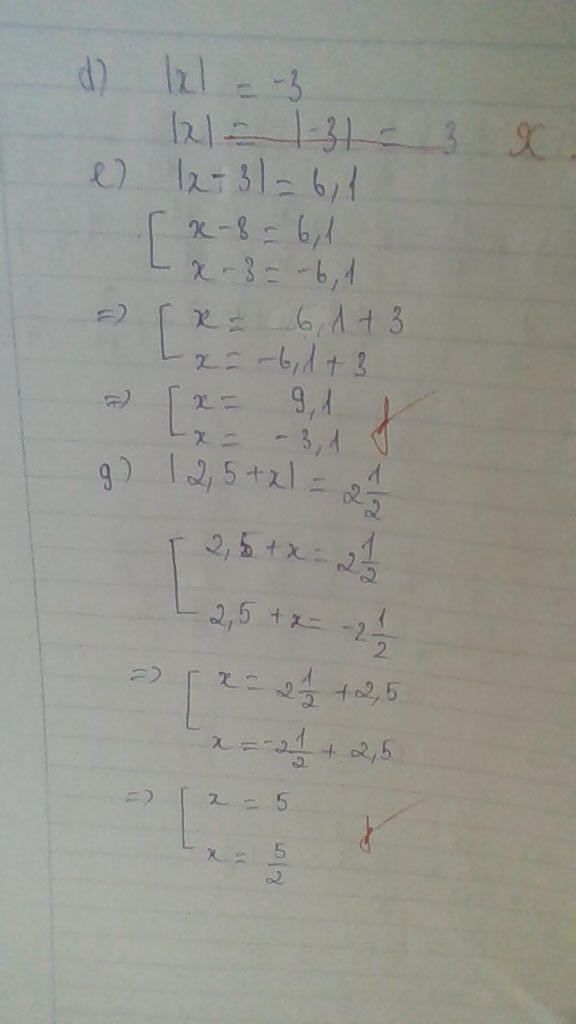 d) |x| = -3
|x| = |-3| = 3 X
e) |x-3| = 6,1
[ x-3 = 6,1
x-3 = -6,1
=> [ x = 6,1+3
x = -6,1+3
=> [ x = 9,1
x = -3,1
g) |2,5+x| = 2 1/2
[ 2,5+x = 2 1/2
2,5+x = -2 1/2
=> [ x = 2 1/2 + 2,5
x = -2 1/2 + 2,5
=> [ x = 5
x = 5/2